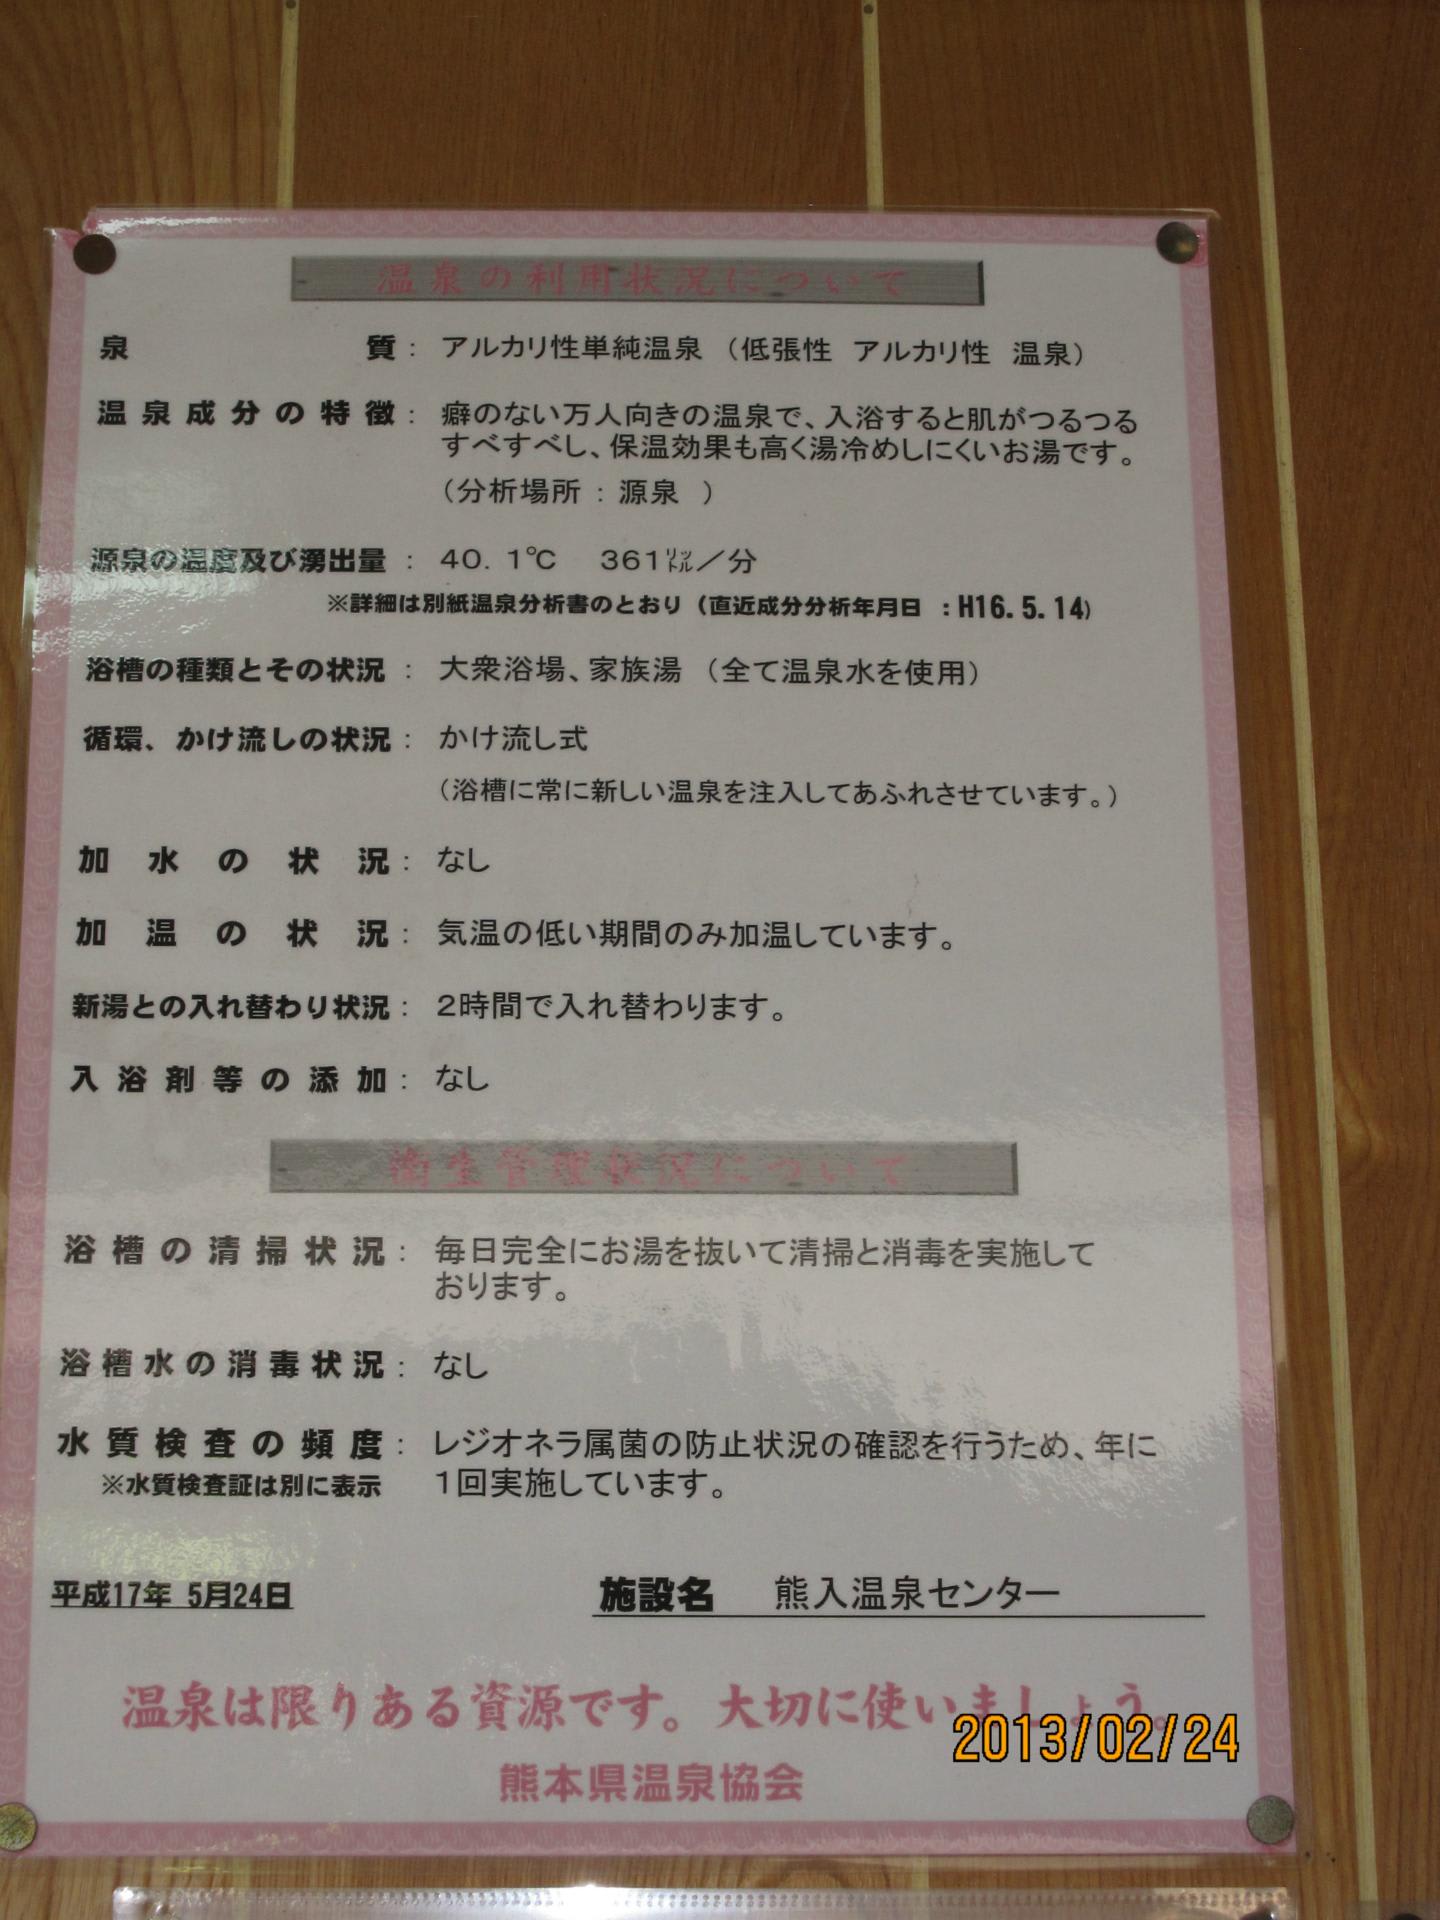 温泉の利用状況について
泉質：アルカリ性単純温泉（低張性 アルカリ性 温泉）
温泉成分の特徴：癖のない万人向きの温泉で、入浴すると肌がつるつる
すべすべし、保温効果も高く湯冷めしにくいお湯です。
（分析場所：源泉 ）
源泉の温度及び湧出量：40.1℃ 361㍑／分
※詳細は別紙温泉分析書のとおり（直近成分分析年月日 ：H16.5.14）
浴槽の種類とその状況：大衆浴場、家族湯（全て温泉水を使用）
循環、かけ流しの状況：かけ流し式
（浴槽に常に新しい温泉を注入してあふれさせています。）
加水の状況：なし
加温の状況：気温の低い期間のみ加温しています。
新湯との入れ替わり状況：2時間で入れ替わります。
入浴剤等の添加：なし
衛生管理状況について
浴槽の清掃状況：毎日完全にお湯を抜いて清掃と消毒を実施して
おります。
浴槽水の消毒状況：なし
水質検査の頻度：レジオネラ属菌の防止状況の確認を行うため、年に
※水質検査証は別に表示 1回実施しています。
平成17年 5月24日 施設名 熊入温泉センター
温泉は限りある資源です。大切に使いましょう。
2013/02/24
熊本県温泉協会